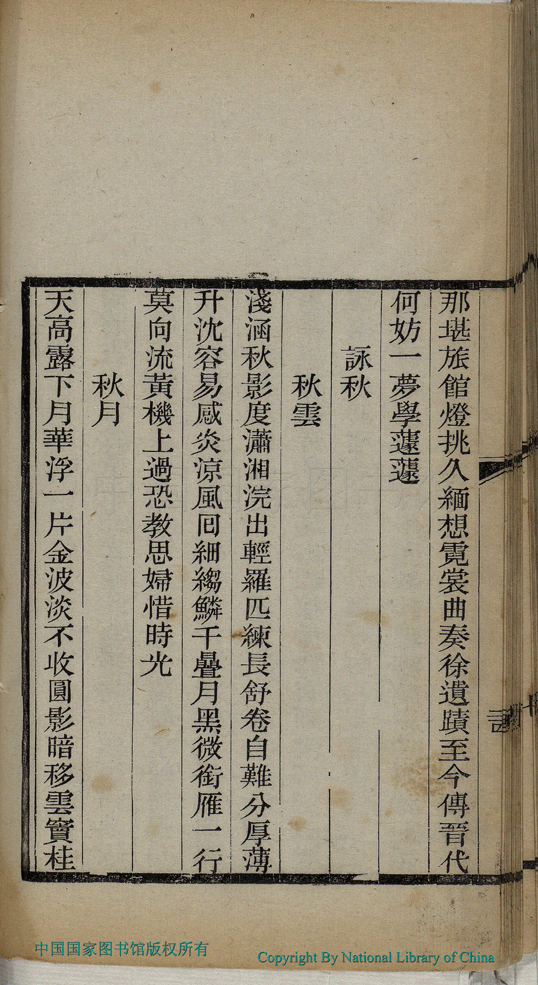 那堪旅館燈挑久緬想霓裳曲奏徐遺蹟至今傳晉代
何妨一夢學蘧蘧
詠秋
秋雲
淺涵秋影度瀟湘浣出輕羅匹練長舒卷自難分厚薄
升沈容易感炎涼風囘細縐鱗千疊月黑微銜雁一行
莫向流黃機上過恐教思婦惜時光
秋月
天高露下月華浮一片金波淡不收圓影暗移雲竇桂
中国国家图书馆版权所有
Copyright By National Library of China